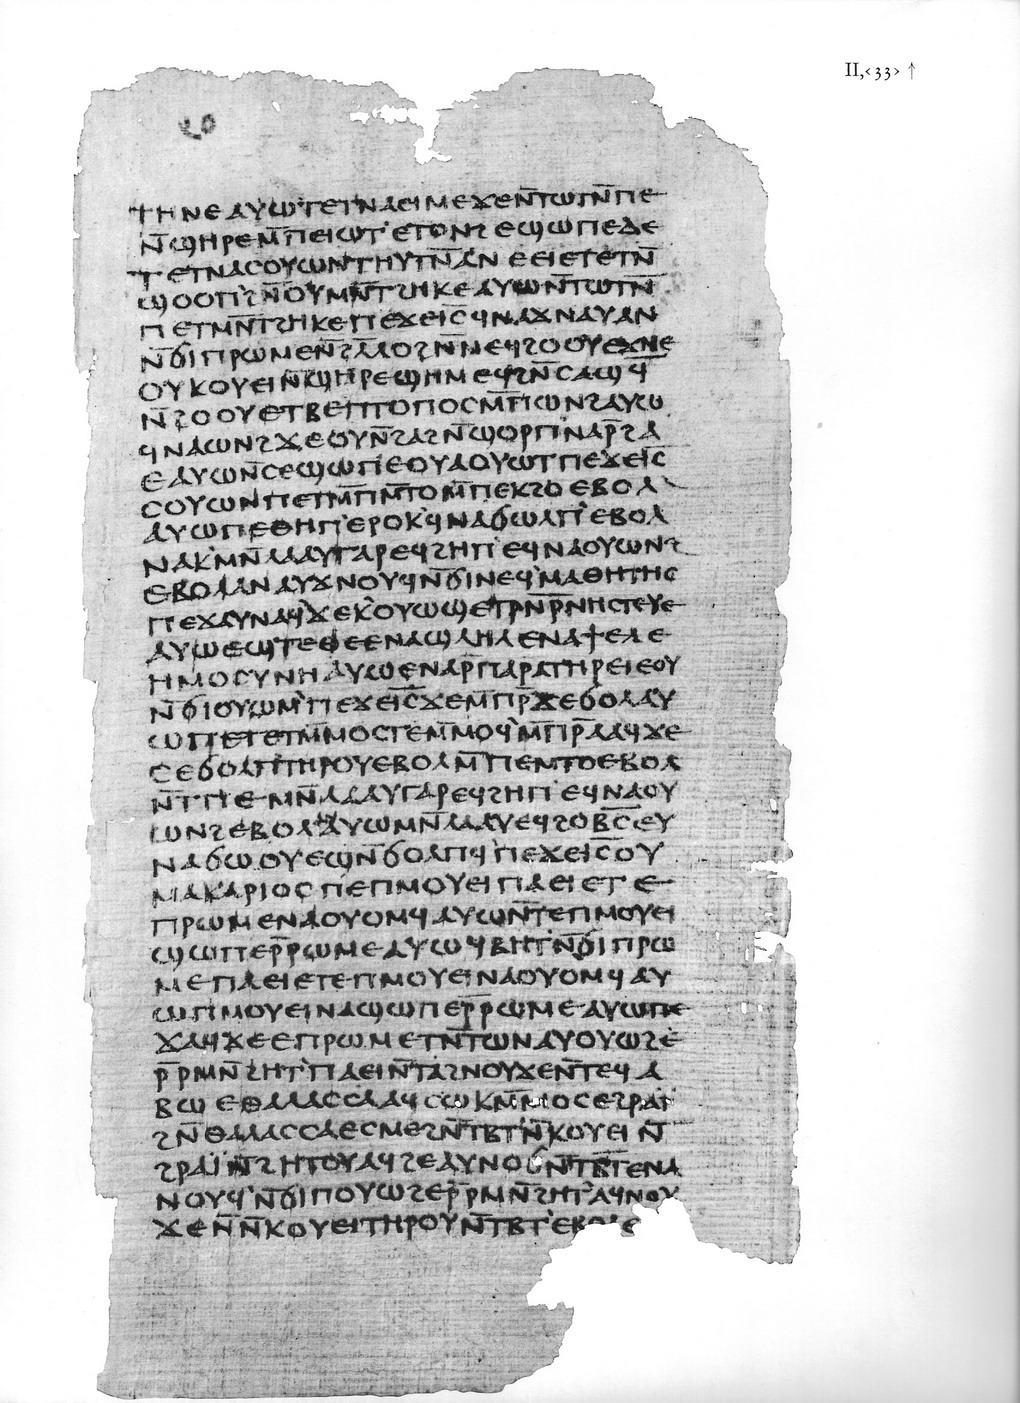 II,<33> ↑
ⲧⲏⲛⲉ ⲁⲩⲱ ⲧⲉⲧⲛⲁⲉⲓⲙⲉ ϫⲉ ⲛ̄ⲧⲱⲧⲛ̄ ⲡⲉ
ⲛ̄ϣⲏⲣⲉ ⲙ̄ⲡⲉⲓⲱⲧ ⲉⲧⲟⲛϩ ⲉϣⲱⲡⲉ ⲇⲉ
ⲧⲉⲧⲛⲁⲥⲟⲩⲱⲛ ⲧⲏⲩⲧⲛ̄ ⲁⲛ ⲉⲉⲓⲉ ⲧⲉⲧⲛ̄
ϣⲟⲟⲡ ϩⲛ̄ ⲟⲩⲙⲛ̄ⲧϩⲏⲕⲉ ⲁⲩⲱ ⲛ̄ⲧⲱⲧⲛ̄
ⲡⲉ ⲧⲙⲛ̄ⲧϩⲏⲕⲉ ⲡⲉϫⲉ ⲓ̄ⲥ̄ ϥⲛⲁϫⲛⲁⲩ ⲁⲛ
ⲛ̄ϭⲓ ⲡⲣⲱⲙⲉ ⲛ̄ϩⲗ̄ⲗⲟ ϩⲛ̄ ⲛⲉϥϩⲟⲟⲩ ⲉϫⲛⲉ
ⲟⲩⲕⲟⲩⲉⲓ ⲛ̄ϣⲏⲣⲉ ϣⲏⲙ ⲉϥϩⲛ̄ ⲥⲁϣϥ̄
ⲛ̄ϩⲟⲟⲩ ⲉⲧⲃⲉ ⲡⲧⲟⲡⲟⲥ ⲙ̄ⲡⲱⲛϩ ⲁⲩⲱ
ϥⲛⲁⲱⲛϩ ϫⲉ ⲟⲩⲛ̄ ϩⲁϩ ⲛ̄ϣⲟⲣⲡ ⲛⲁⲣ̄ ϩⲁ
ⲉ ⲁⲩⲱ ⲛ̄ⲥⲉϣⲱⲡⲉ ⲟⲩⲁ ⲟⲩⲱⲧ ⲡⲉϫⲉ ⲓ̄ⲥ̄
ⲥⲟⲩⲱⲛ ⲡⲉⲧⲙ̄ⲡⲙ̄ⲧⲟ ⲙ̄ⲡⲉⲕϩⲟ ⲉⲃⲟⲗ
ⲁⲩⲱ ⲡⲉⲑⲏⲡ ⲉⲣⲟⲕ ϥⲛⲁϭⲱⲗⲡ ⲉⲃⲟⲗ
ⲛⲁⲕ ⲙⲛ̄ ⲗⲁⲁⲩ ⲅⲁⲣ ⲉϥϩⲏⲡ ⲉϥⲛⲁⲟⲩⲱⲛϩ
ⲉⲃⲟⲗ ⲁⲛ ⲁⲩϫⲛⲟⲩϥ ⲛ̄ϭⲓ ⲛⲉϥⲙⲁⲑⲏⲧⲏⲥ
ⲡⲉϫⲁⲩ ⲛⲁϥ ϫⲉ ⲕⲟⲩⲱϣ ⲉⲧⲣⲛ̄ⲣ̄ⲛⲏⲥⲧⲉⲩⲉ
ⲁⲩⲱ ⲉϣ ⲧⲉ ⲑⲉ ⲉⲛⲁϣⲗⲏⲗ ⲉⲛⲁϯ ⲉⲗⲉ
ⲏⲙⲟⲥⲩⲛⲏ ⲁⲩⲱ ⲉⲛⲁⲣ̄ⲡⲁⲣⲁⲧⲏⲣⲉⲓ ⲉⲟⲩ
ⲛ̄ϭⲓⲟⲩⲱⲙ ⲡⲉϫⲉ ⲓ̄ⲥ̄ ϫⲉ ⲙ̄ⲡⲣ̄ϫⲉ ϭⲟⲗ ⲁⲩ
ⲱ ⲡⲉⲧⲉⲧⲙ̄ⲙⲟⲥⲧⲉ ⲙ̄ⲙⲟϥ ⲙ̄ⲡⲣ̄ⲁⲁϥ ϫⲉ
ⲥⲉϭⲟⲗⲡ ⲧⲏⲣⲟⲩ ⲉⲃⲟⲗ ⲙ̄ⲡⲉⲙⲧⲟ ⲉⲃⲟⲗ
ⲛ̄ⲧⲡⲉ ⲙⲛ̄ ⲗⲁⲁⲩ ⲅⲁⲣ ⲉϥϩⲏⲡ ⲉϥⲛⲁⲟⲩ
ⲱⲛϩ ⲉⲃⲟⲗ ⲁⲛ ⲁⲩⲱ ⲙⲛ̄ ⲗⲁⲁⲩ ⲉϥϩⲟⲃ̄ⲥ̄ ⲉⲩ
ⲛⲁϭⲱ ⲟⲩⲉϣⲛ̄ ϭⲟⲗⲡϥ ⲡⲉϫⲉ ⲓ̄ⲥ̄ ⲟⲩ
ⲙⲁⲕⲁⲣⲓⲟⲥ ⲡⲉ ⲡⲙⲟⲩⲉⲓ ⲡⲁⲉⲓ ⲉⲧⲉ
ⲡⲣⲱⲙⲉ ⲛⲁⲟⲩⲟⲙϥ ⲁⲩⲱ ⲛ̄ⲧⲉ ⲡⲙⲟⲩⲉⲓ
ϣⲱⲡⲉ ⲣ̄ⲣⲱⲙⲉ ⲁⲩⲱ ϥⲃⲏⲧ ⲛ̄ϭⲓ ⲡⲣⲱ
ⲙⲉ ⲡⲁⲉⲓ ⲉⲧⲉ ⲡⲙⲟⲩⲉⲓ ⲛⲁⲟⲩⲟⲙϥ ⲁⲩ
ⲱ ⲡⲙⲟⲩⲉⲓ ⲛⲁϣⲱⲡⲉ ⲣ̄ⲣⲱⲙⲉ ⲁⲩⲱ ⲡⲉ
ϫⲁϥ ϫⲉ ⲉⲡⲣⲱⲙⲉ ⲧⲛ̄ⲧⲱⲛ ⲁⲩⲟⲩⲱϩⲉ
ⲣ̄ⲣⲙⲛ̄ϩⲏⲧ ⲡⲁⲉⲓ ⲛ̄ⲧⲁϩⲛⲟⲩϫⲉ ⲛ̄ⲧⲉϥⲁ
ⲃⲱ ⲉⲑⲁⲗⲁⲥⲥⲁ ⲁϥⲥⲱⲕ ⲙ̄ⲙⲟⲥ ⲉϩⲣⲁⲓ̈
ϩⲛ̄ ⲑⲁⲗⲁⲥⲥⲁ ⲉⲥⲙⲉϩ ⲛ̄ⲧⲃⲧ ⲛ̄ⲕⲟⲩⲉⲓ ⲛ̄
ϩⲣⲁⲓ̈ ⲛ̄ϩⲏⲧⲟⲩ ⲁϥϩⲉ ⲁⲩⲛⲟϭ ⲛ̄ⲧⲃⲧ ⲉⲛⲁ
ⲛⲟⲩϥ ⲛ̄ϭⲓ ⲡⲟⲩⲱϩⲉ ⲣ̄ⲣⲙⲛ̄ϩⲏⲧ ⲁϥⲛⲟⲩ
ϫⲉ ⲛ̄ⲛ̄ⲕⲟⲩⲉⲓ ⲧⲏⲣⲟⲩ ⲛ̄ⲧⲃⲧ